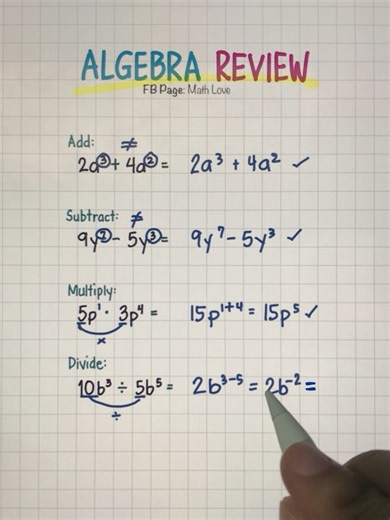 ALGEBRA REVIEW
FB Page: Math Love
Add: ≠
2a³ + 4a² = 2a³ + 4a² ✓
Subtract: ≠
9y⁷ - 5y³ = 9y⁷ - 5y³ ✓
Multiply:
5p¹ · 3p⁴ = 15p¹⁺⁴ = 15p⁵ ✓
×
Divide:
10b³ ÷ 5b⁵ = 2b³⁻⁵ = 2b⁻² =
÷